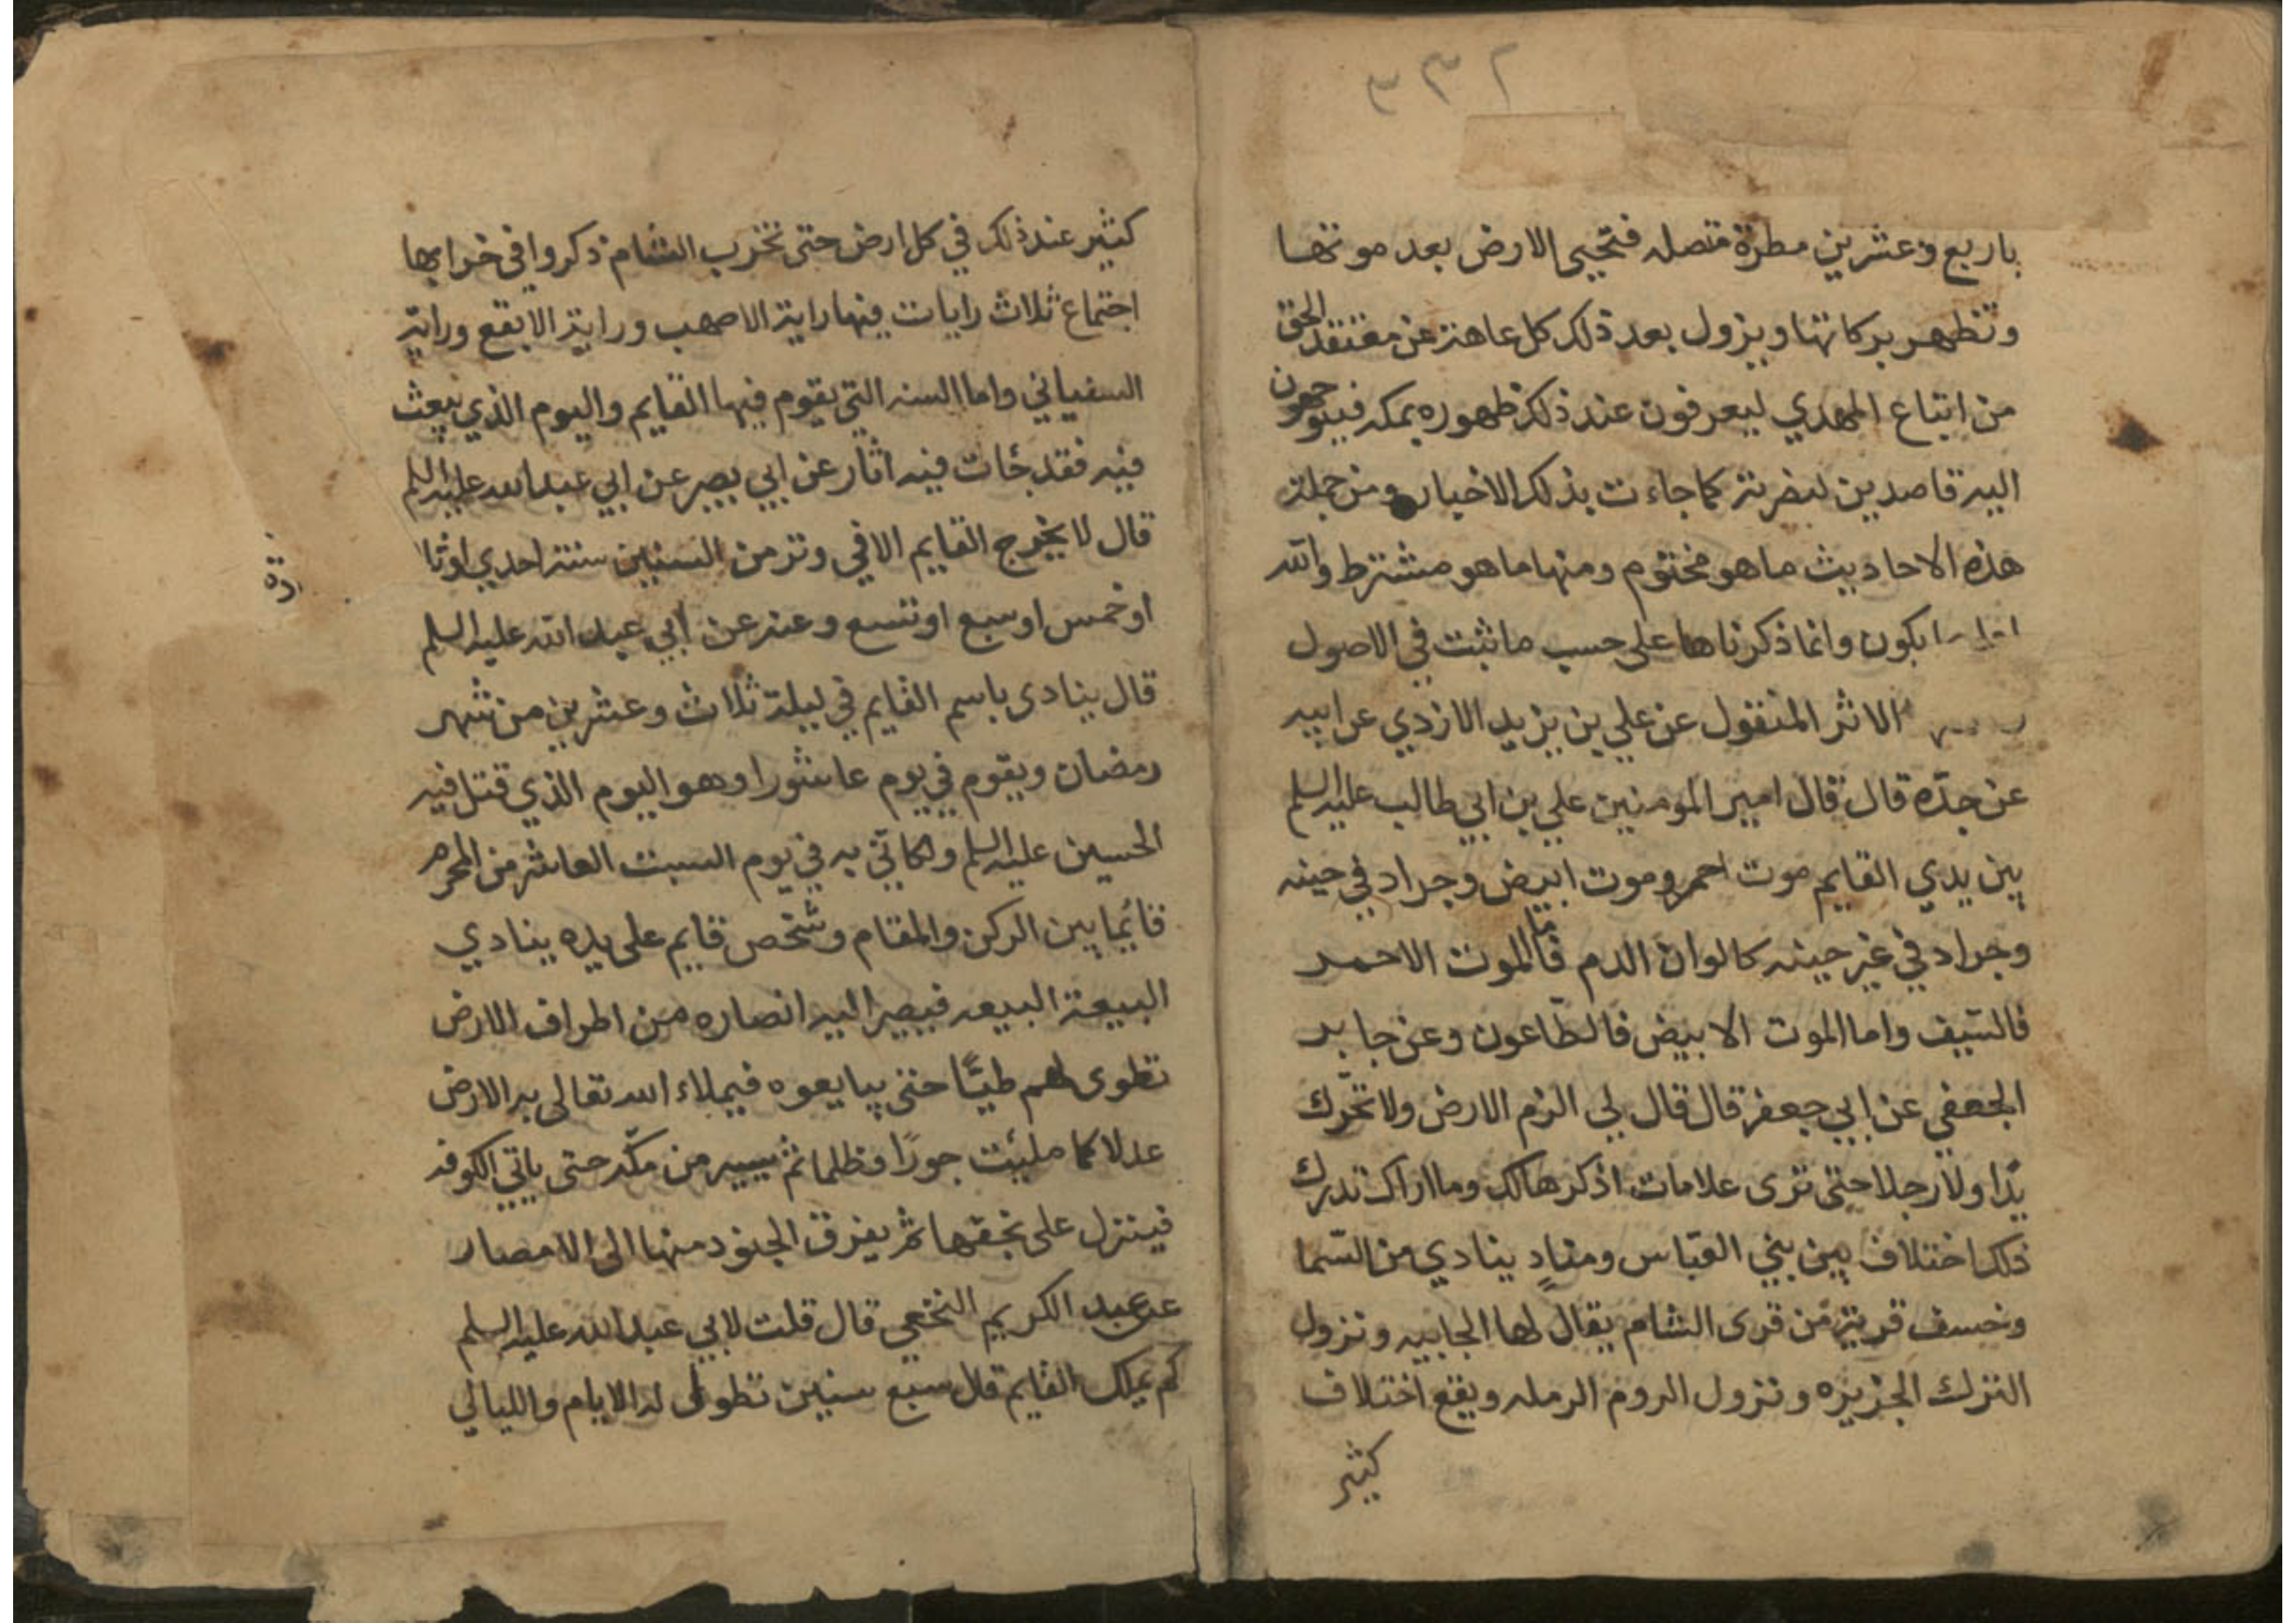 ٣٣٢
باربع وعشرين مطرة متصله فتحيى الارض بعد موتها
وتظهر بركاتها ويزول بعد ذلك كل عاهة عن معتقد الحق
من اتباع المهدي ليعرفون عند ذلك ظهوره بمكه فيتوجهون
اليه قاصدين لنضرته كما جاءت بذلك الاخبار ومن جملة
هذه الاحاديث ما هو مختوم ومنها ما هو مشترط والله
يكون وانما ذكرناها على حسب ما ثبت في الاصول
الاثر المنقول عن علي بن يزيد الازدي عن ابيه
عن جدّه قال قال امير المومنين علي بن ابي طالب عليه السلم
بين يدي القايم موت احمر وموت ابيض وجراد في حينه
وجراد في غير حينه كالوان الدم فاما الموت الاحمر
فالسّيف واما الموت الابيض فالطّاعون وعن جابر
الجعفي عن ابي جعفر قال قال لي الزم الارض ولا تحرّك
يدًا ولا رجلا حتى ترى علامات اذكرها لك وما اراك تدرك
ذلك اختلاف بين بني العبّاس ومنادٍ ينادي من السّما
وخسف قرية من قرى الشام يقال لها الجابيه ونزول
الترك الجزيره ونزول الروم الرمله ويقع اختلاف
كثير
كثير عند ذلك في كل ارض حتى تخرب الشام ذكروا في خرابها
اجتماع ثلاث رايات فيها راية الاصهب وراية الابقع وراية
السفياني واما السنه التي يقوم فيها القايم واليوم الذي يبعث
فيه فقد جٔات فيه اثار عن ابي بصير عن ابي عبد الله عليه السلم
قال لا يخرج القايم الا في وتر من السنين سنة احدي او ثلا
او خمس او سبع او تسع وعنه عن ابي عبد الله عليه السلم
قال ينادى باسم القايم في ليلة ثلاث وعشرين من شهر
رمضان ويقوم في يوم عاشورا وهو اليوم الذي قتل فيه
الحسين عليه السلم ولكاني به في يوم السبت العاشر من المحرم
قائما بين الركن والمقام وشخص قايم على يده ينادي
البيعة البيعه فيصير اليه انصاره من اطراف الارض
تطوى لهم طيًّا حتى يبايعوه فيملاء الله تعالى به الارض
عدلا كما ملئت جورًا وظلما ثم يسير من مكّه حتى ياتي الكوفه
فينزل على نجفها ثم يفرق الجنود منها الى الامصار
عن عبد الكريم النخعي قال قلت لابي عبد الله عليه السلم
كم يملك القايم قال سبع سنين تطول له الايام والليالي